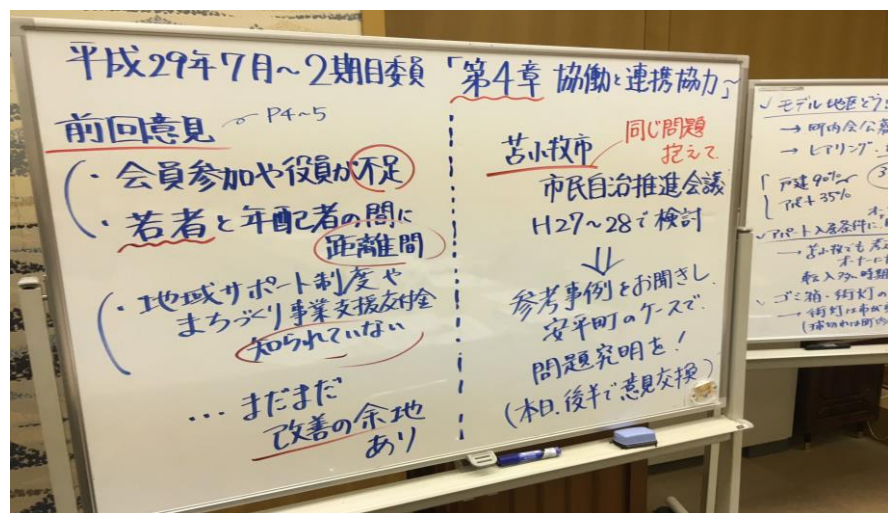 平成29年7月~2期目委員 「第4章 協働と連携協力~」
前回意見 P4~5
・会員参加や役員が不足
・若者と年配者の間に
距離間
・地域サポート制度や
まちづくり事業支援交付金
知られていない
…まだまだ
改善の余地
あり
苫小牧市
同じ問題
抱えて
市民自治推進会議
H27~28で検討
⇓
参考事例をお聞きし
安平町のケースで、
問題究明を!
(本日、後半で意見交換)
✓ モデル地区どう
→ 町内会公募
→ ヒアリング・
戸建90%
アパート35%
✓ アパート入居条件に
→ 苫小牧でも
オーナーに
転入アタ、時期
✓ ゴミ箱・街灯の
→ 街灯は市が
(球切れは町内